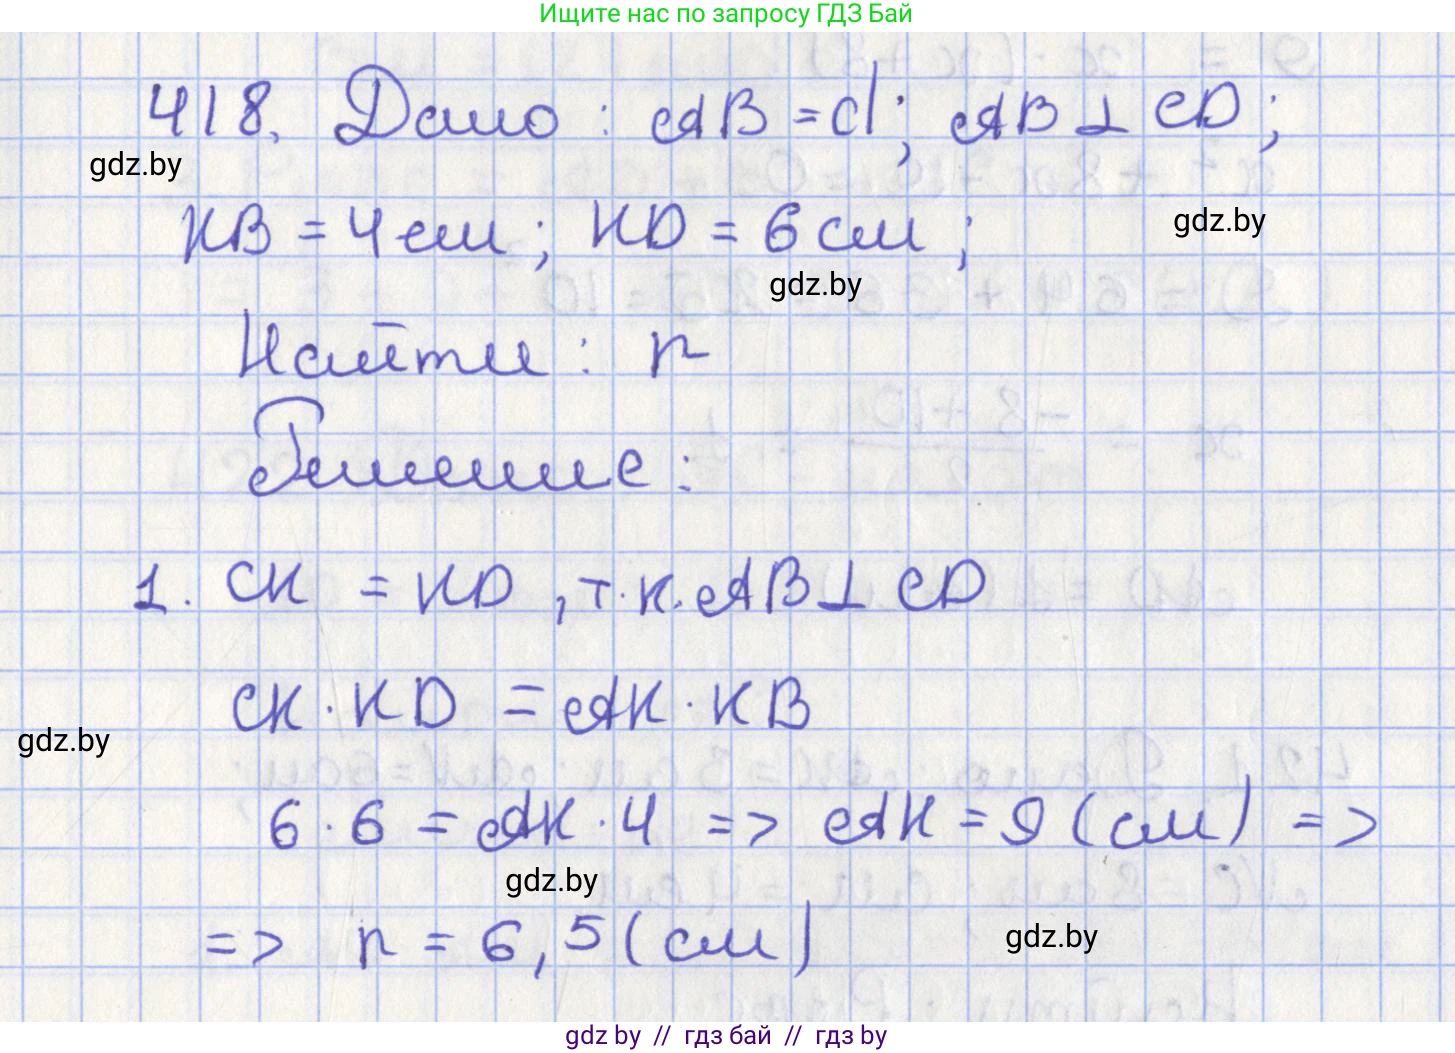 Ищите нас по запросу ГДЗ Бай
418. Дано: AB = d; AB ⊥ CD;
gdz.by
KB = 4 см; KD = 6 см;
gdz.by
gdz.by
Найти: r
Решение:
1. CK = KD, т.к. AB ⊥ CD
CK · KD = AK · KB
gdz.by
6 · 6 = AK · 4 => AK = 9 (см) =>
gdz.by
=> r = 6,5 (см)
gdz.by
gdz by // гдз бай // гдз by